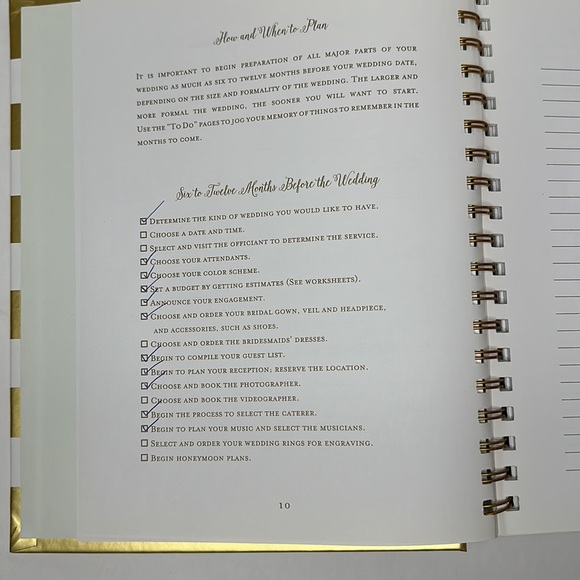 How and When to Plan
It is important to begin preparation of all major parts of your
wedding as much as six to twelve months before your wedding date,
depending on the size and formality of the wedding. The larger and
more formal the wedding, the sooner you will want to start.
Use the "To Do" pages to jog your memory of things to remember in the
months to come.
Six to Twelve Months Before the Wedding
☑ Determine the kind of wedding you would like to have.
☐ Choose a date and time.
☐ Select and visit the officiant to determine the service.
☑ Choose your attendants.
☑ Choose your color scheme.
☑ Set a budget by getting estimates (See worksheets).
☑ Announce your engagement.
☑ Choose and order your bridal gown, veil and headpiece,
and accessories, such as shoes.
☐ Choose and order the bridesmaids' dresses.
☑ Begin to compile your guest list.
☑ Begin to plan your reception; reserve the location.
☑ Choose and book the photographer.
☐ Choose and book the videographer.
☑ Begin the process to select the caterer.
☑ Begin to plan your music and select the musicians.
☐ Select and order your wedding rings for engraving.
☐ Begin honeymoon plans.
10